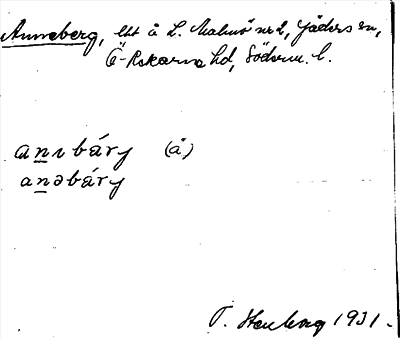 Anneberg, lht å L. Malmö nr 2, Jäders sn,
Ö-Rekarne hd, Söderm. l.
anıbáry (å)
anəbáry
T. Henberg 1931.